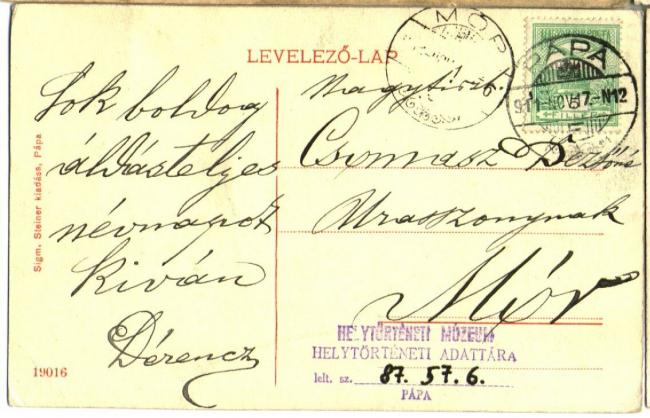 LEVELEZŐ-LAP
MÓR
PÁPA
911 NOV 17 - N12
FILLÉR
Sok boldog
áldásteljes
névnapot
kíván
Dérencz
Nagytiszt.
Csomasz Dezsőné
Urasszonynak
Mór
Sigm. Steiner kiadása, Pápa
19016
HELYTÖRTÉNETI MÚZEUM
HELYTÖRTÉNETI ADATTÁRA
lelt. sz. 87. 57. 6.
PÁPA